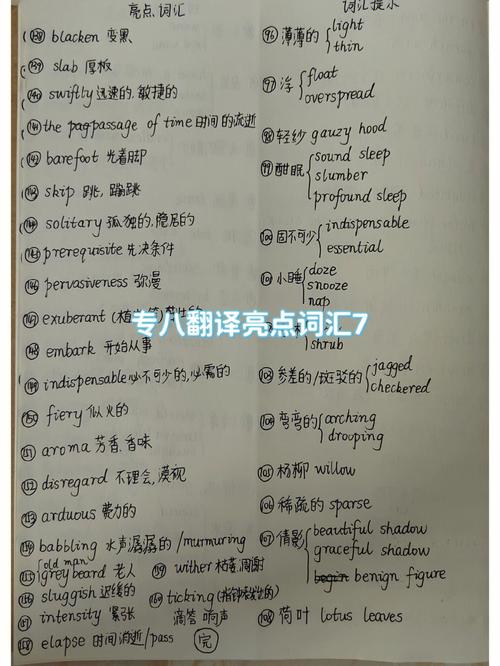 亮点词汇
138 blacken 变黑
139 slab 厚板
140 swiftly 迅速的,敏捷的
141 the passage of time 时间的流逝
142 barefoot 光着脚
143 skip 跳,蹦跳
144 solitary 孤独的,隐居的
145 prerequisite 先决条件
146 pervasiveness 弥漫
147 exuberant (植
148 embark 开始从事
149 indispensable 必不可少的,必需的
150 fiery 似火的
151 aroma 芳香,香味
152 disregard 不理会,漠视
153 arduous 费力的
154 babbling 水声潺潺的 /murmuring
155 old man
greybeard 老人
156 sluggish 迟缓的
157 intensity 紧张
158 elapse 时间消逝/pass
159 wither 枯萎,凋谢
160 ticking (指钟发出的)
滴答响声
完
词汇提示
96 薄薄的 light
thin
97 浮 float
overspread
98 轻纱 gauzy hood
99 酣眠 sound sleep
slumber
profound sleep
100 固不可少 indispensable
essential
101 小睡 doze
snooze
nap
专八翻译亮点词汇7
shrub
103 参差的/斑驳的 jagged
checkered
104 弯弯的 arching
drooping
105 杨柳 willow
106 稀疏的 sparse
107 倩影 beautiful shadow
graceful shadow
benign figure
108 荷叶 lotus leaves